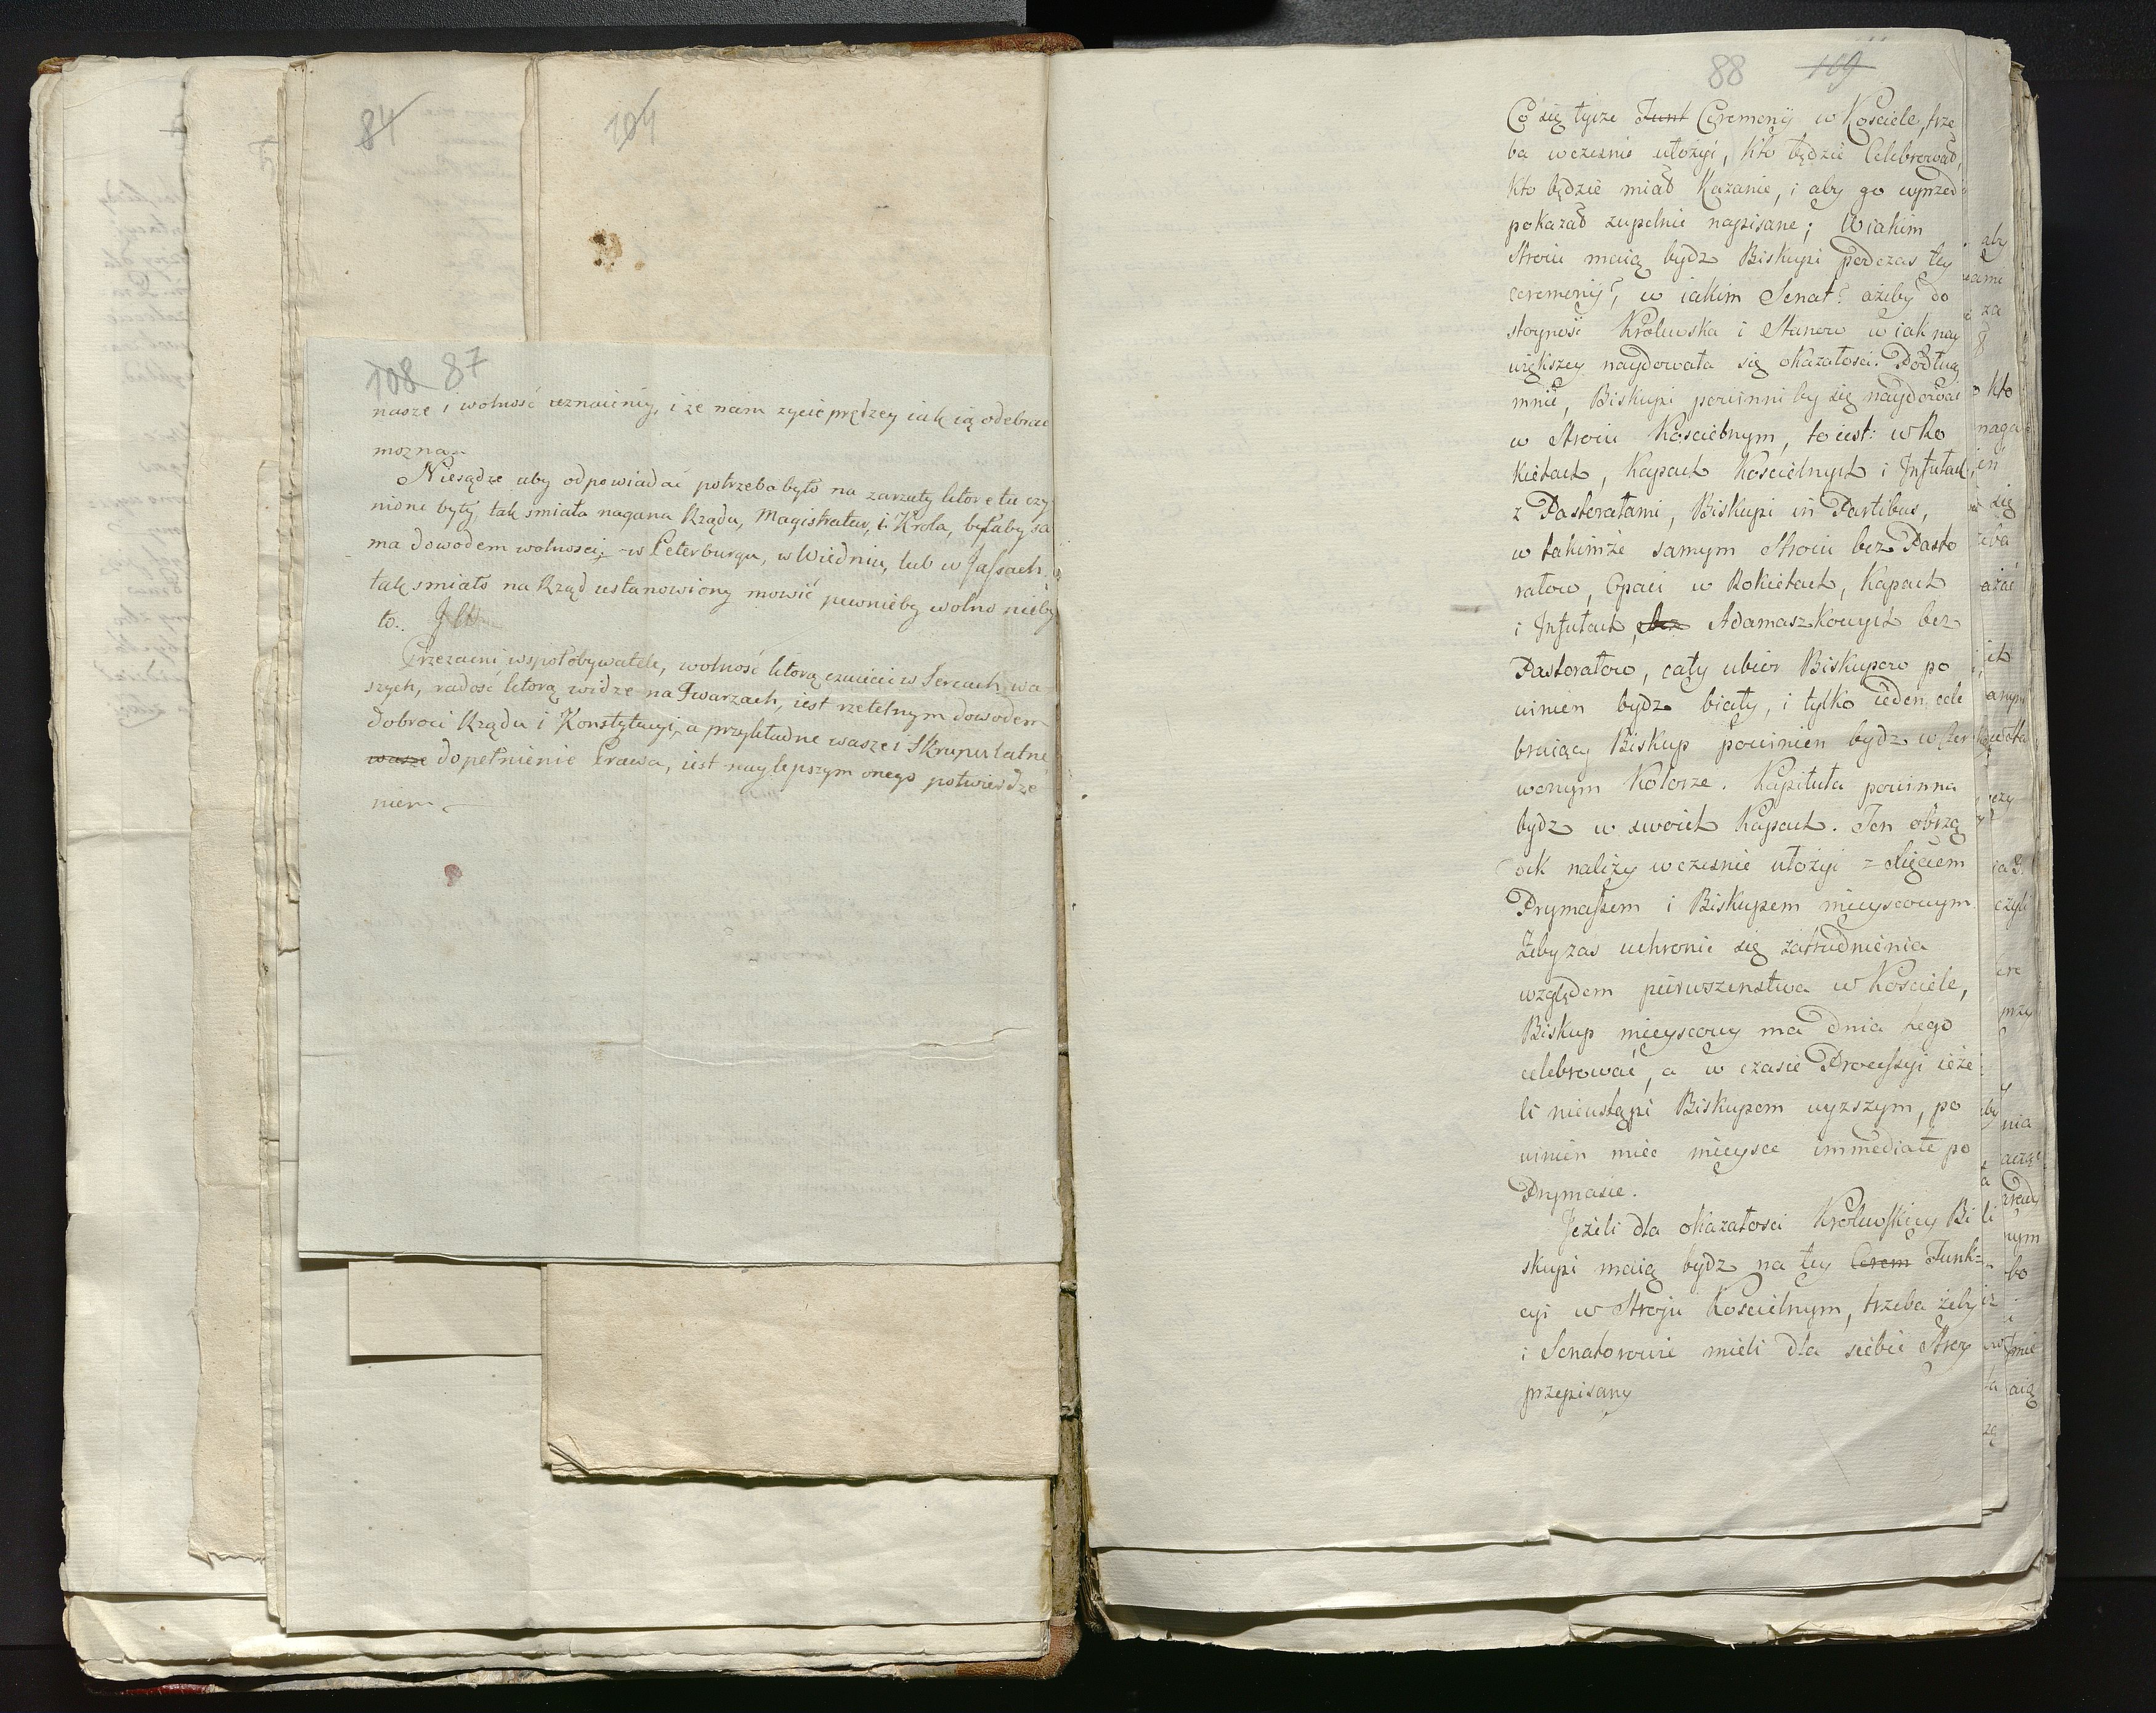 84
104
108 87
nasze i wolność uznaiemy, i że nam życie prędzey iak ią odebrać
można.
Niesądze aby odpowiadać potrzeba było na zarzuty które tu czy
nione były, tak śmiała nagana Rządu, Magistratur, i Krola, byłaby sa
ma dowodem wolności; w Peterburgu, w Wiedniu, lub w Jassach,
tak smiało na Rząd ustanowiony mowić pewnieby wolno nieby
ło.
Przezacni wspołobywatele, wolność którą czuiecie w Sercach wa
szych, radość którą widze na Twarzach, iest rzetelnym dowodem
dobroci Rządu i Konstytucyi, a przykładne wasze i skrupulatne
wasze dopełnienie Prawa, iest naylepszym onego potwierdze
niem.
88 109
Co się tycze Funk Ceremonij w Kosciele, trze
ba wczesnie ułożyć, kto będzie Celebrował,
kto będzie miał Kazanie, i aby go wprzód
pokazał zupełnie napisane; W iakim
Stroiu maią bydz Biskupi podczas tey
ceremonij?, w iakim Senat? ażeby do
stoyność Krolewska i Stanow w iak nay
większey naydowała się okazałosci. Podług
mnie, Biskupi powinniby się naydować
w Stroiu Koscielnym, to iest: w Ro
kietach, Kapach Koscielnych i Infułach
z Pastorałami, Biskupi in Partibus,
w takimże samym Stroiu bez Pasto
rałow, Opaci w Rokietach, Kapach
i Infułach, bez Adamaszkowych bez
Pastorałow, cały ubior Biskupow po
winien bydz biały, i tylko ieden cele
bruiący Biskup powinien bydz w czer
wonym Kolorze. Kapituła powinna
bydz w swoich Kapach. Ten obrzą
dek należy wczesnie ułożyć z Xięciem
Prymassem i Biskupem mieyscowym
Żeby zas uchronić się zatrudnienia
względem pierwszenstwa w Kosciele,
Biskup mieyscowy ma dnia tego
celebrować, a w czasie Processyi ieże
li nieustąpi Biskupom wyższym, po
winien mieć mieysce immediate po
Prymasie.
Jeżeli dla okazałosci Krolewskiey Bi
skupi maią bydz na tey Cerem Funk=
cyi w Stroju Koscielnym, trzeba żeby
i Senatorowie mieli dla siebie Stroy
przepisany